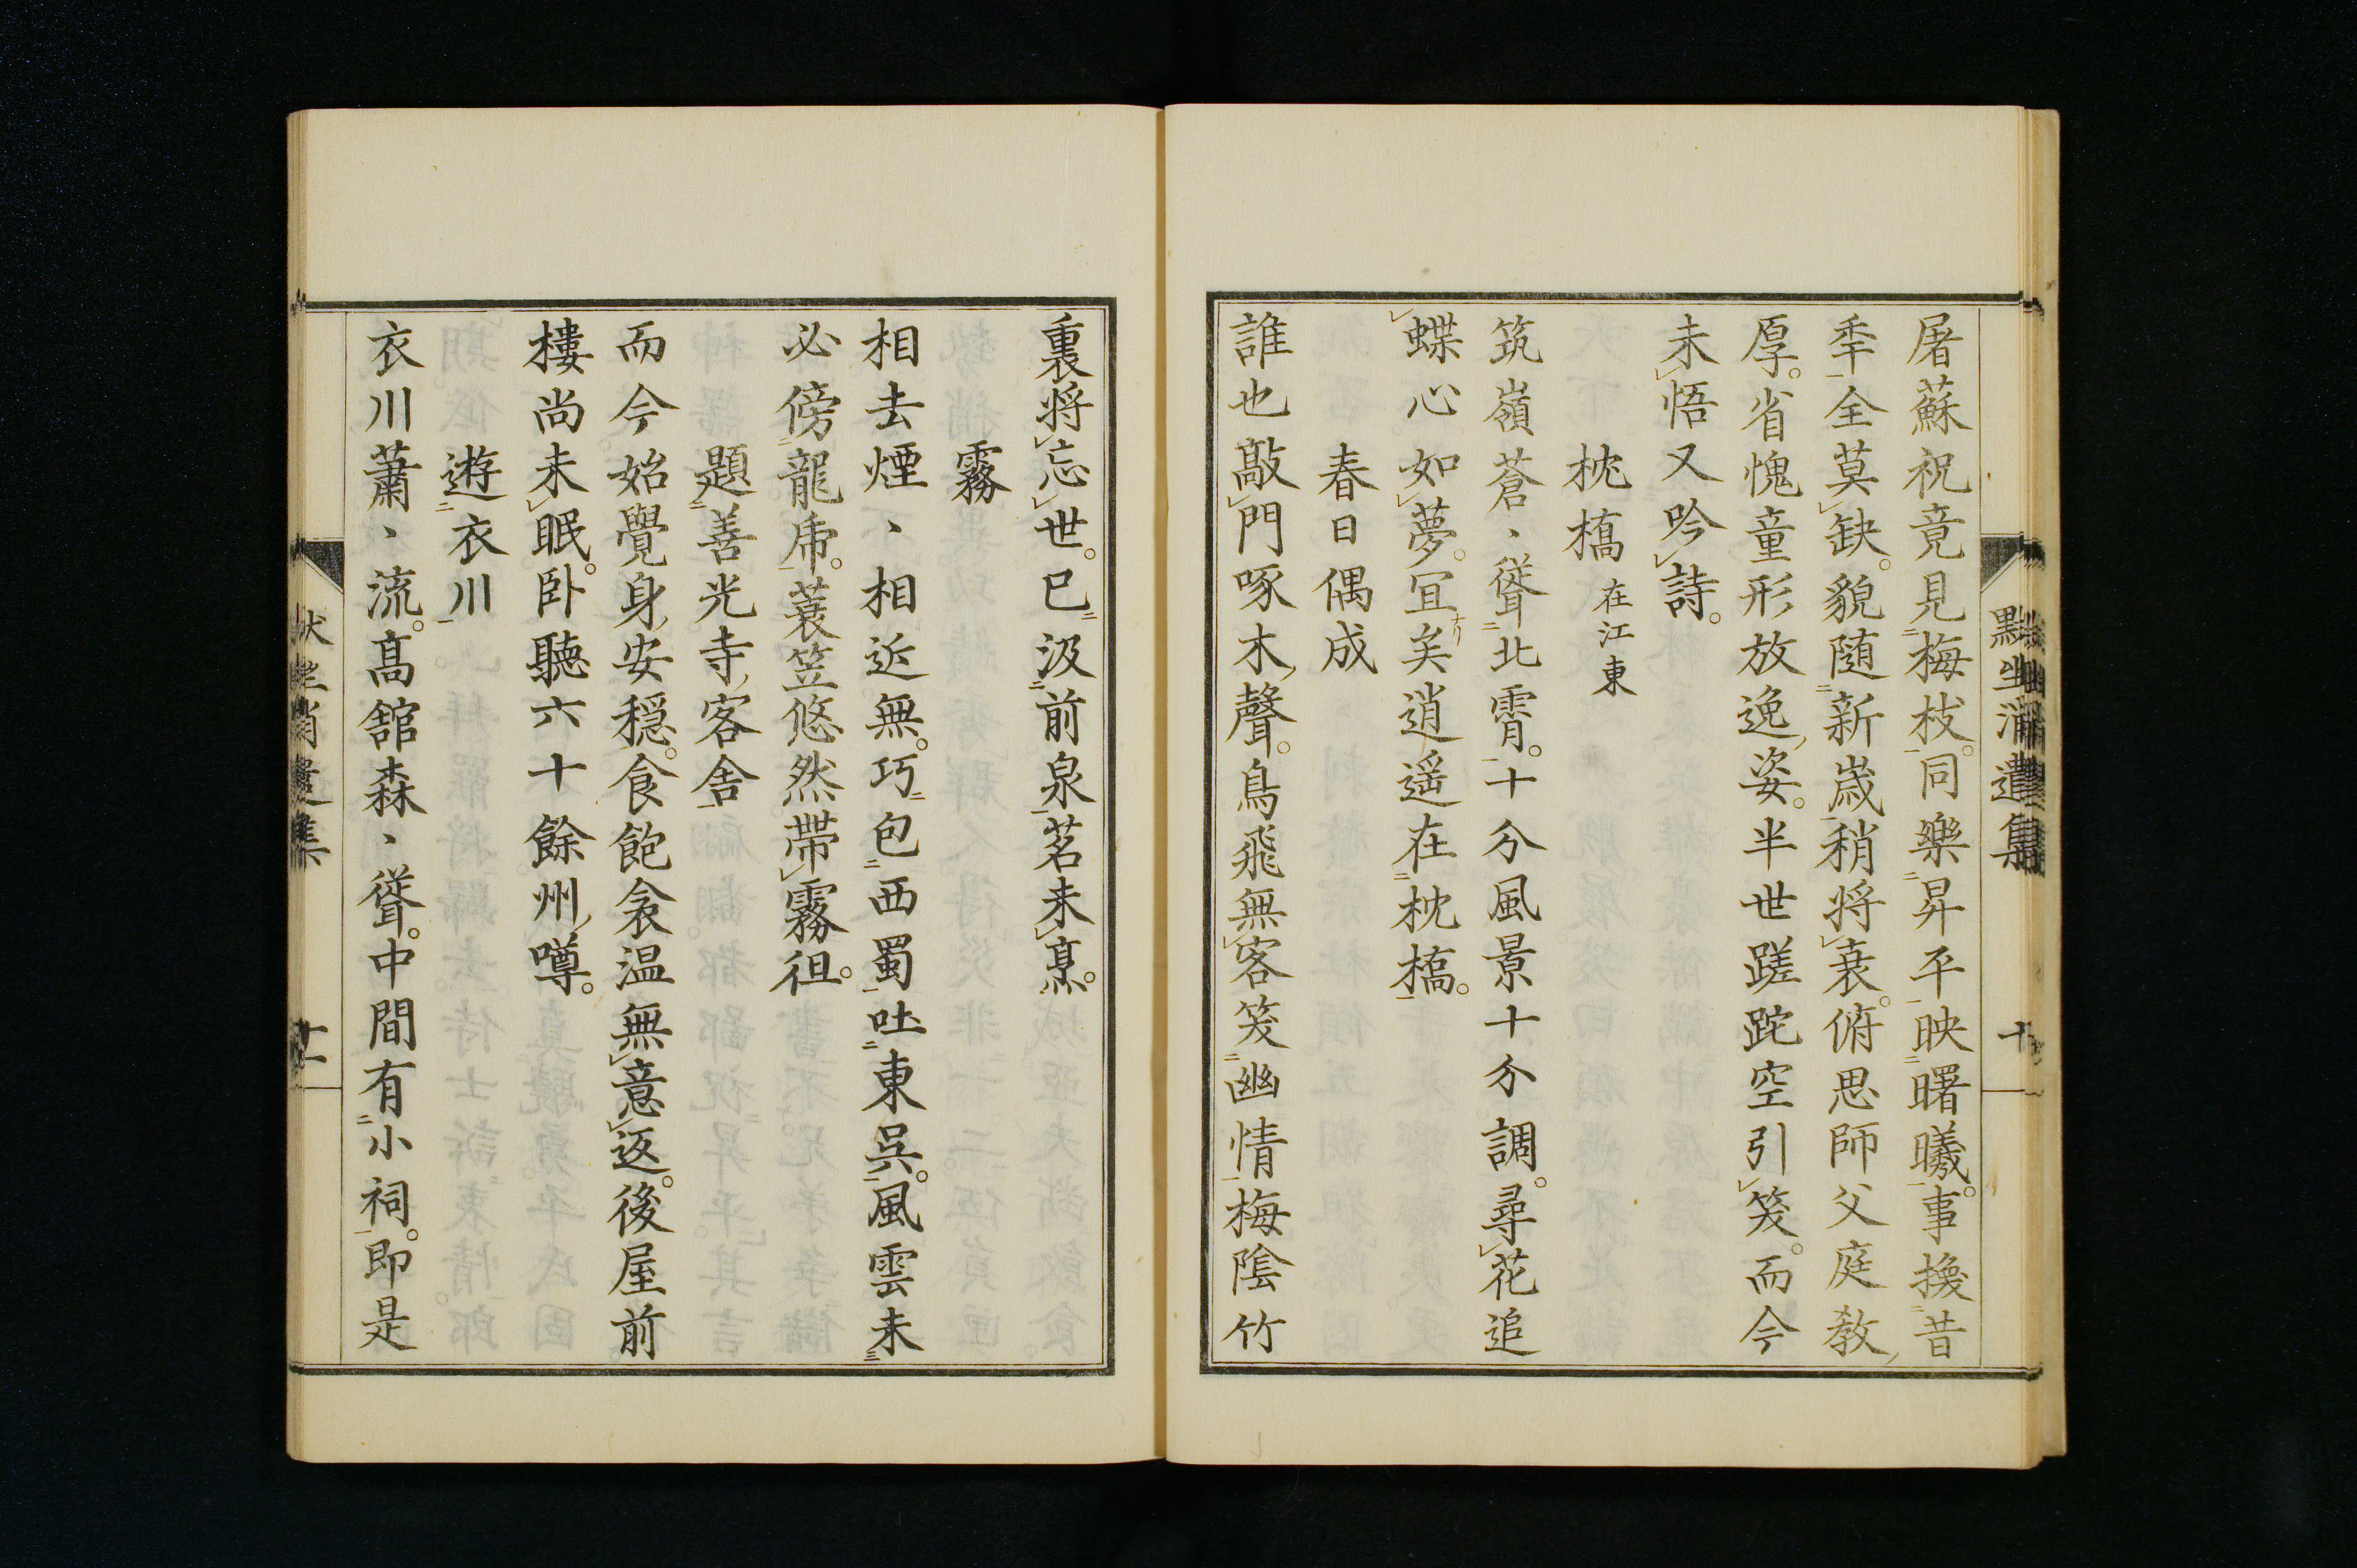 屠蘇祝竟見梅枝。同樂昇平映曙曦。事換昔
秊全莫缺。貌隨新歲稍將衰。俯思師父庭教
厚。省愧童形放逸姿。半世蹉跎空引笑。而今
未悟又吟詩。
枕橋 在江東
筑嶺蒼、聳北霄。十分風景十分調。尋花追
蝶心如夢。宜矣逍遥在枕橋。
春日偶成
誰也敲門啄木聲。鳥飛無客笑幽情梅陰竹
裏將忘世。已汲前泉茗未烹。
霧
相去煙、相近無。巧包西蜀吐東呉。風雲未
必傍龍乕。蓑笠悠然帶霧徂。
題善光寺客舎
而今始覺身安穏。食飽衾温無意返。後屋前
樓尚未眠。卧聽六十餘州噂。
遊衣川
衣川蕭、流。髙舘森、聳。中間有小祠。即是
遺集
十
遺集
十一